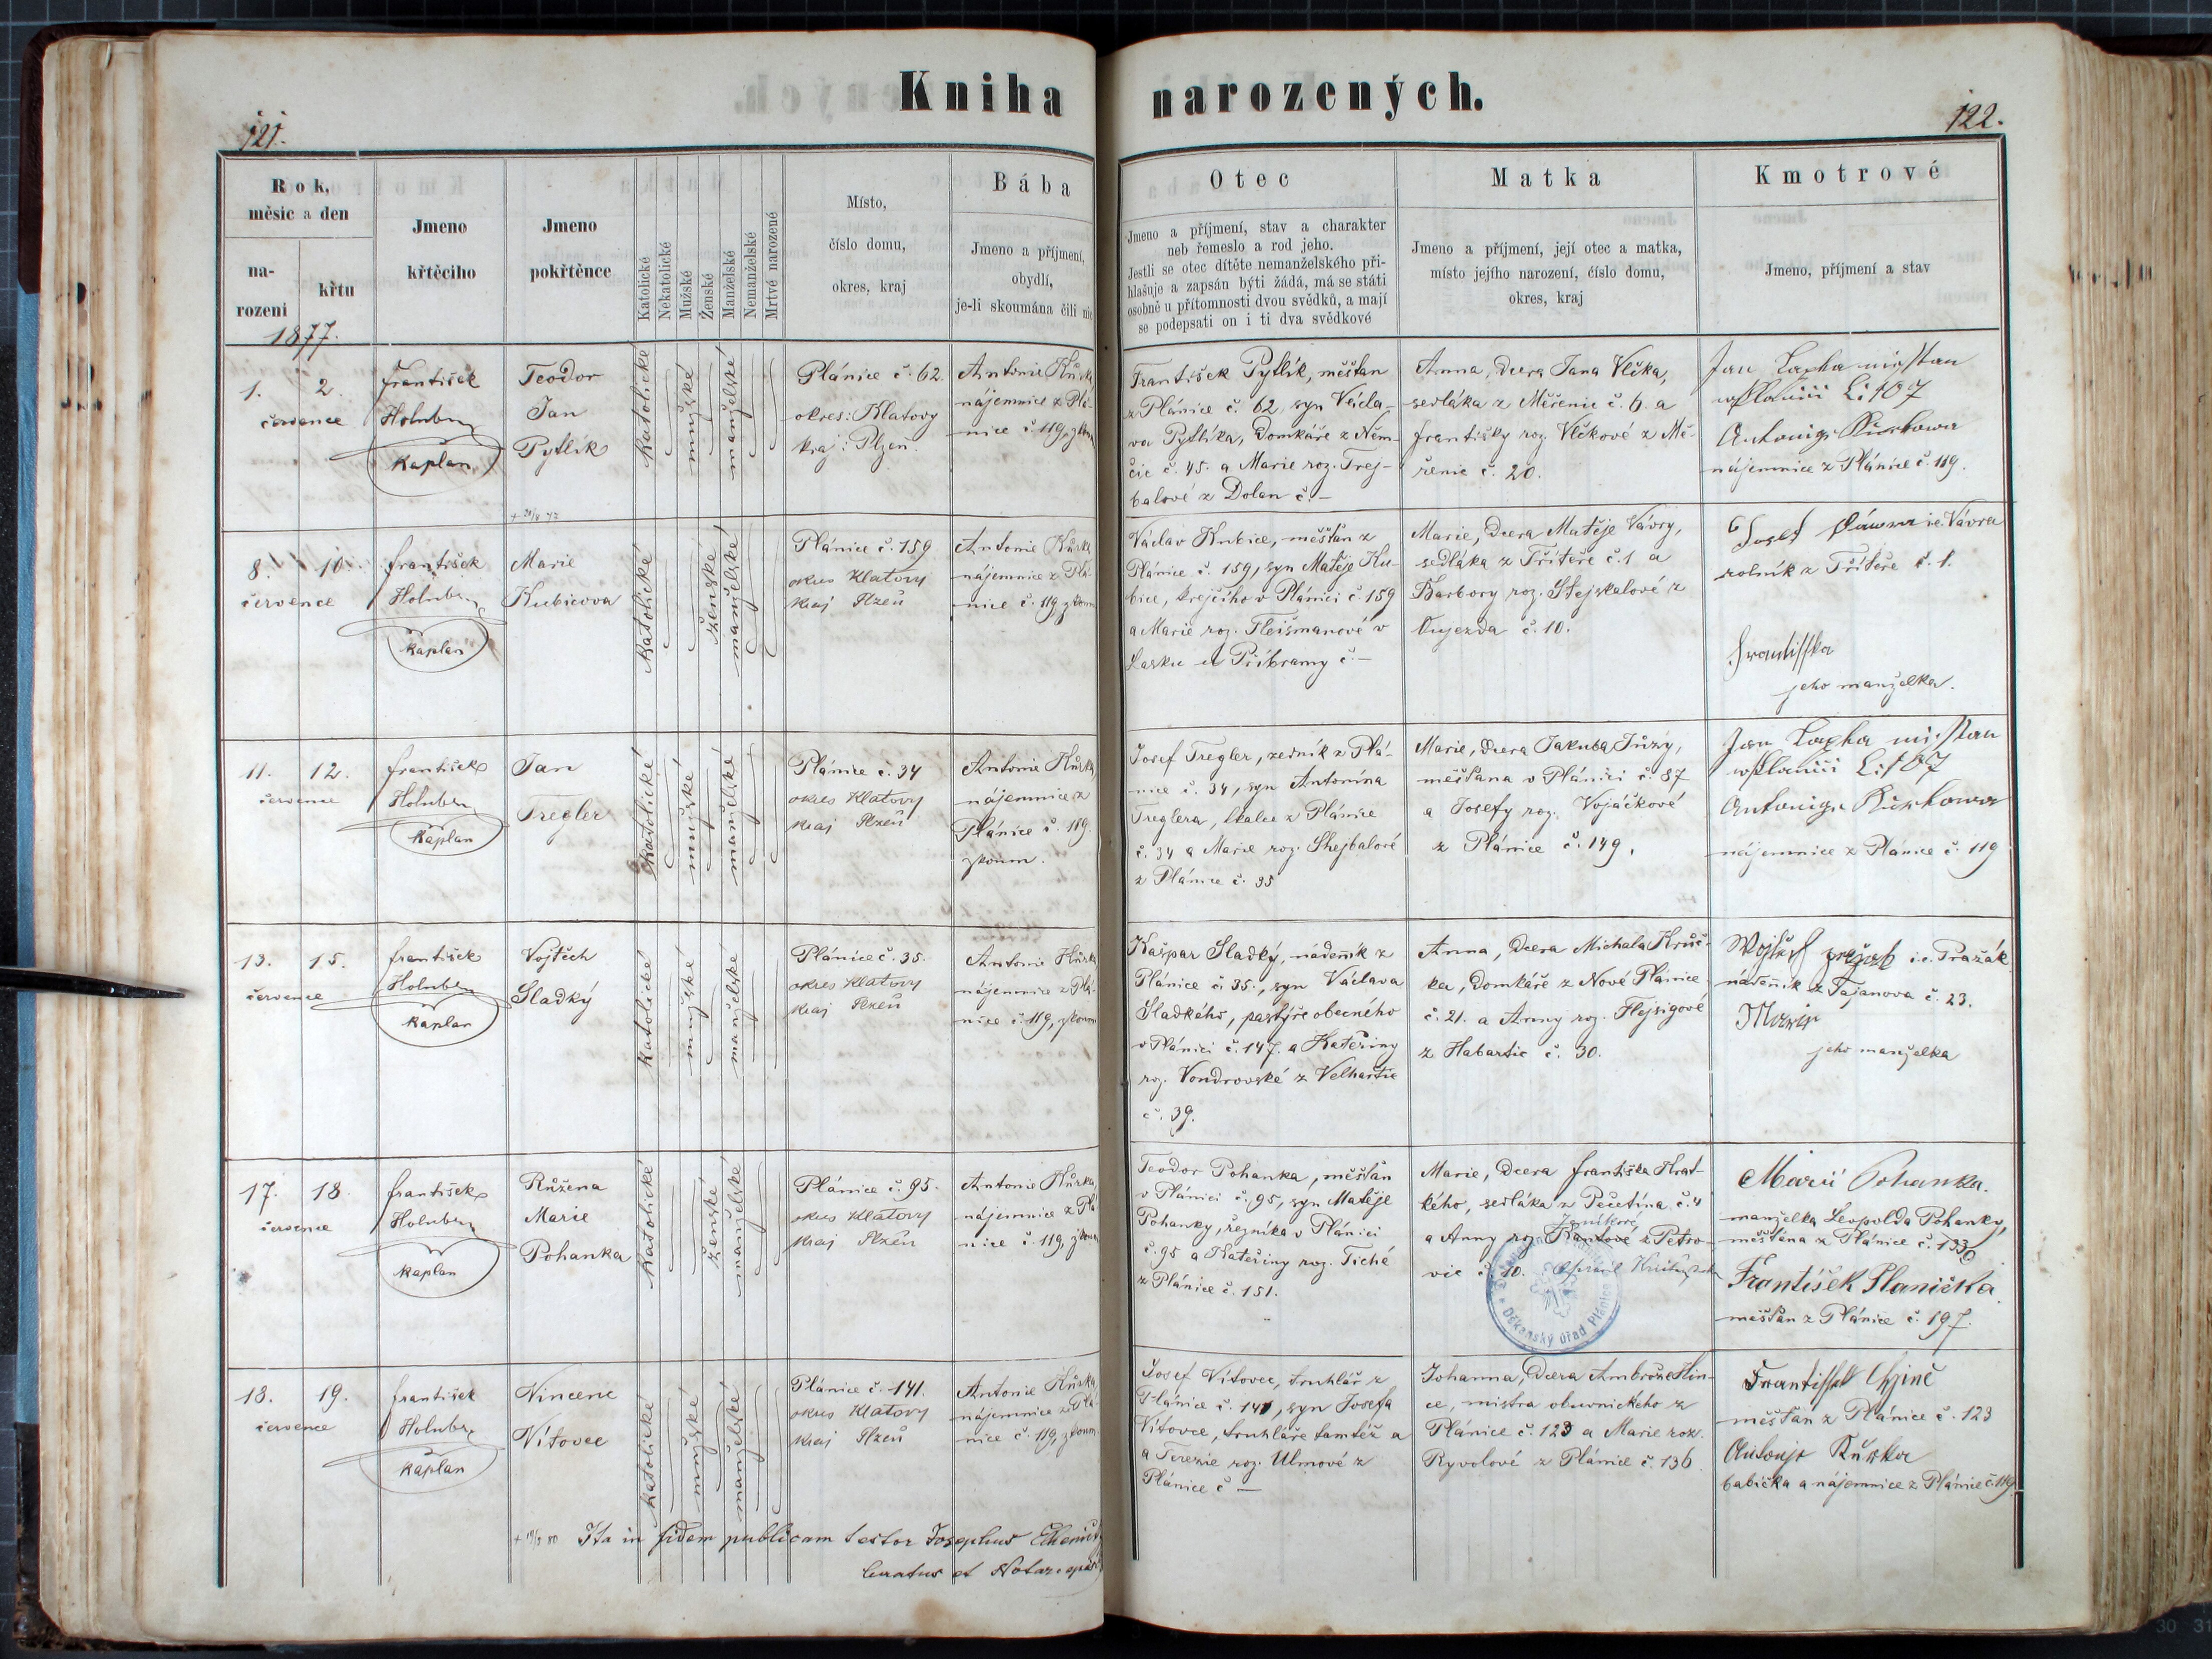 Kniha narozených.
121.
122.
Rok,
měsíc a den
na-
rozeni
křtu
1877.
Jmeno
křtěcího
Jmeno
pokřtěnce
Katolické
Nekatolické
Mužské
Ženské
Manželské
Nemanželské
Mrtvé narozené
Místo,
číslo domu,
okres, kraj
Bába
Jmeno a příjmení,
obydlí,
je-li skoumána čili nic
Otec
Jmeno a příjmení, stav a charakter
neb řemeslo a rod jeho.
Jestli se otec dítěte nemanželského při-
hlašuje a zapsán býti žádá, má se státi
osobně u přítomnosti dvou svědků, a mají
se podepsati on i ti dva svědkové
Matka
Jmeno a příjmení, její otec a matka,
místo jejího narození, číslo domu,
okres, kraj
Kmotrové
Jmeno, příjmení a stav
1. 2.
července
František
Holub
kaplan
Teodor
Jan
Pytlík
katolické
mužské
manželské
Plánice č. 62.
okres: Klatovy
kraj: Plzeň.
Antonie Kůrka,
nájemnice z Plá-
nice č. 119, zkoum
František Pytlík, měšťan
z Plánice č. 62, syn Václa-
va Pytlíka, domkáře z Něm-
čic č. 45. a Marie roz. Trej-
balové z Dolan č. –
Anna, dcera Jana Vlčka,
sedláka z Měřenic č. 6. a
Františky roz. Vlčkové z Mě-
řenic č. 20.
Jan
107
nájemnice z Plánice č. 119.
8. 10.
července
František
Holub
kaplan
Marie
Kubicova
katolické
ženské
manželské
Plánice č. 159
okres Klatovy
kraj Plzeň
Antonie Kůrka
nájemnice z Plá-
nice č. 119 zkoum
Václav Kubice, měšťan z
Plánice č. 159, syn Matěje Ku-
bice, krejčího v Plánici č. 159
a Marie roz. Fleišmanové v
Lasku u Příbramy č. –
Marie, dcera Matěje Vávry,
sedláka z Třítěře č. 1 a
Barbory roz. Stejskalové z
Oujezda č. 10.
Josef i.e. Vávra
rolník z Třítěře č. 1.
Frantisska
jeho manželka.
11. 12.
července
František
Holub
kaplan
Jan
Tregler
katolické
mužské
manželské
Plánice č. 34
okres Klatovy
kraj Plzeň
Antonie Kůrka,
nájemnice z
Plánice č. 119.
zkoum.
Josef Tregler, zedník z Plá-
nice č. 34, syn Antonína
Treglera, tkalce z Plánice
č. 34 a Marie roz. Shejbalové
z Plánice č. 35
Marie, dcera Jakuba Jůzy,
měšťana v Plánici č. 87
a Josefy roz. Vojáčkové
z Plánice č. 149.
Jan
107
nájemnice z Plánice č. 119
13. 15.
července
František
Holub
kaplan
Vojtěch
Sladký
katolické
mužské
manželské
Plánice č. 35.
okres Klatovy
kraj Plzeň
Antonie Kůrka
nájemnice z Plá-
nice č. 119, zkoum
Kašpar Sladký, nádeník z
Plánice č. 35., syn Václava
Sladkého, pastýře obecného
v Plánici č. 147. a Kateřiny
roz. Vondrovské z Velhartic
č. 39.
Anna, dcera Michala Kruč-
ka, domkáře z Nové Plánice
č. 21. a Anny roz. Flejsigové
z Habartic č. 30.
i.e. Pražák
nádenník z Tajanova č. 23.
jeho manželka
17. 18.
července
František
Holub
kaplan
Růžena
Marie
Pohanka
katolické
ženské
manželské
Plánice č. 95.
okres Klatovy
kraj Plzeň
Antonie Kůrka,
nájemnice z Plá
nice č. 119, zkoum
Teodor Pohanka, měšťan
v Plánici č. 95, syn Matěje
Pohanky, řezníka v Plánici
č. 95 a Kateřiny roz. Tiché
z Plánice č. 151.
Marie, dcera Františka Krat-
kého, sedláka z Pečetína č. 4
a Anny roz. z Petro-
vic č. 10.
Děkanský úřad Plánice
Marie Pohanka.
manželka Leopolda Pohanky,
měšťana z Plánice č. 133
František Planička
měšťan z Plánice č. 197.
18. 19.
července
František
Holub
kaplan
Vincenc
Vítovec
katolické
mužské
manželské
Plánice č. 141.
okres Klatovy
kraj Plzeň
Antonie Kůrka,
nájemnice z Plá-
nice č. 119, zkoum
Josef Vítovec, truhlář z
Plánice č. 141, syn Josefa
Vítovce, truhláře tamtéž a
a Terezie roz. Ulmové z
Plánice č –
Johanna, dcera Ambrože Hin-
ce, mistra obuvnického z
Plánice č. 123 a Marie roz.
Ryvolové z Plánice č. 136.
měšťan z Plánice č. 123
Kůrka
babička a nájemnice z Plánice č. 119
Ita in fidem publicam testor Josephus
Curatus et Notar.